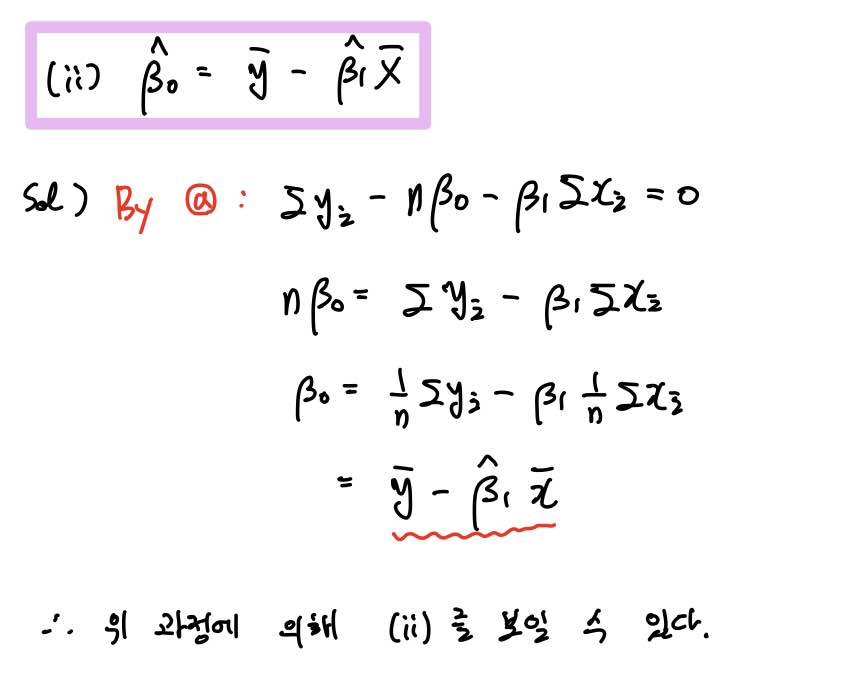 (ii) β̂₀ = ȳ - β̂₁ x̄
Sol) By ⓐ : Σyᵢ - nβ₀ - β₁Σxᵢ = 0
nβ₀ = Σyᵢ - β₁Σxᵢ
β₀ = 1/n Σyᵢ - β₁ 1/n Σxᵢ
= ȳ - β̂₁ x̄
∴ 위 과정에 의해 (ii)를 보일 수 있다.